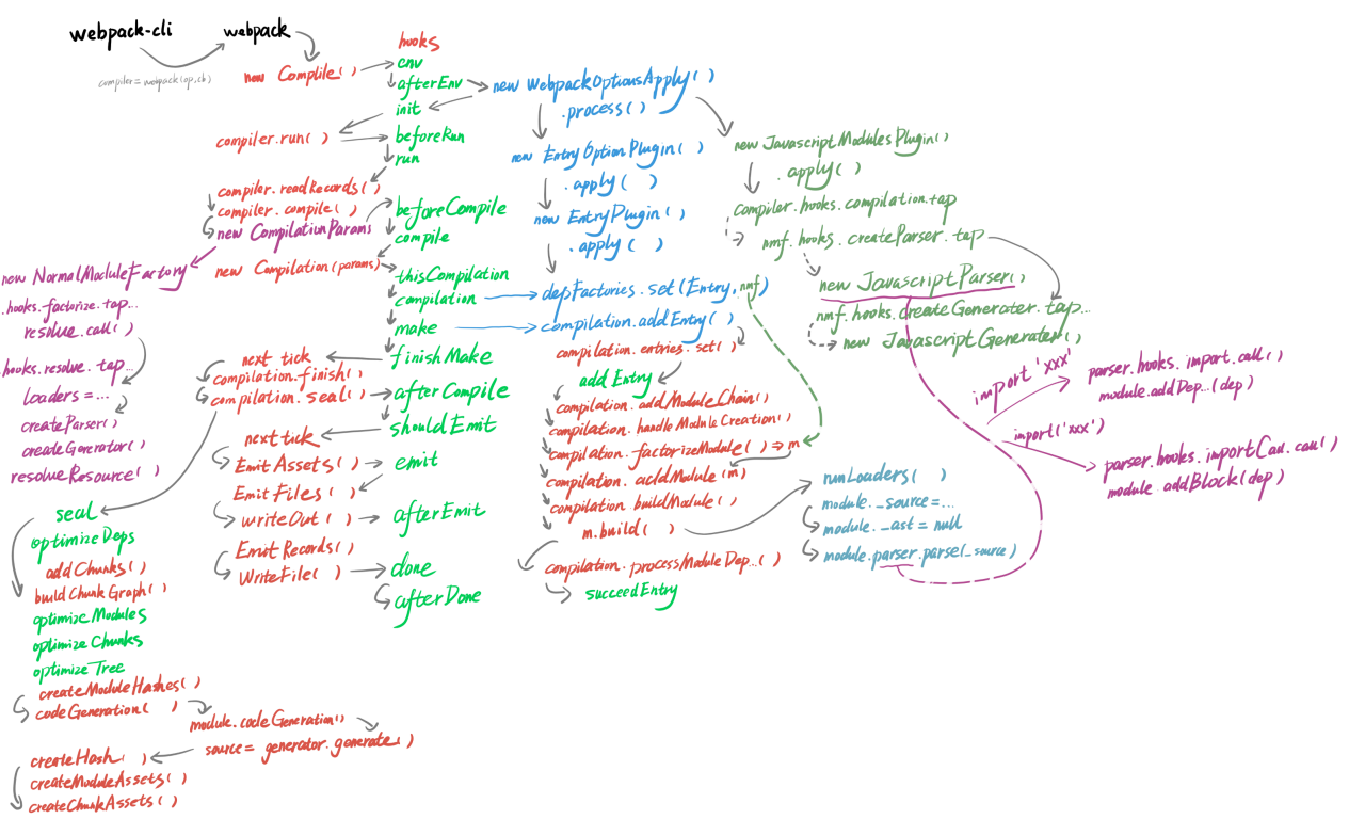 webpack-cli
webpack
compiler = webpack(op,cb)
new Complile( )
hooks
env
afterEnv
init
beforeRun
run
beforeCompile
compile
thisCompilation
compilation
make
finishMake
afterCompile
shouldEmit
emit
afterEmit
done
afterDone
compiler.run( )
compiler.readRecords( )
compiler.compile( )
new CompilationParams
new Compilation(params)
next tick
compilation.finish( )
compilation.seal( )
next tick
EmitAssets( )
EmitFiles( )
writeOut( )
EmitRecords( )
WriteFile( )
new NormalModuleFactory
.hooks.factorize.tap...
resolve.call( )
.hooks.resolve.tap...
loaders = ...
createParser( )
createGenerator( )
resolveResource( )
seal
optimizeDeps
addChunks( )
buildChunkGraph( )
optimizeModules
optimizeChunks
optimizeTree
createModuleHashes( )
codeGeneration( )
module.codeGeneration( )
source = generator.generate( )
createHash( )
createModuleAssets( )
createChunkAssets( )
new WebpackOptionsApply( )
.process( )
new EntryOptionPlugin( )
.apply( )
new EntryPlugin( )
.apply( )
depFactories.set(Entry, nmf)
compilation.addEntry( )
compilation.entries.set( )
addEntry
compilation.addModuleChain( )
compilation.handleModuleCreation( )
compilation.factorizeModule( ) => m
compilation.addModule(m)
compilation.buildModule( )
m.build( )
compilation.processModuleDep...( )
succeedEntry
new JavascriptModulesPlugin( )
.apply( )
compiler.hooks.compilation.tap
nmf.hooks.createParser.tap
new JavascriptParser( )
nmf.hooks.createGenerater.tap...
new JavascriptGenerater( )
import 'xxx'
parser.hooks.import.call( )
module.addDep...(dep)
import('xxx')
parser.hooks.importCall.call( )
module.addBlock(dep)
runLoaders( )
module._source = ...
module._ast = null
module.parser.parse(_source)